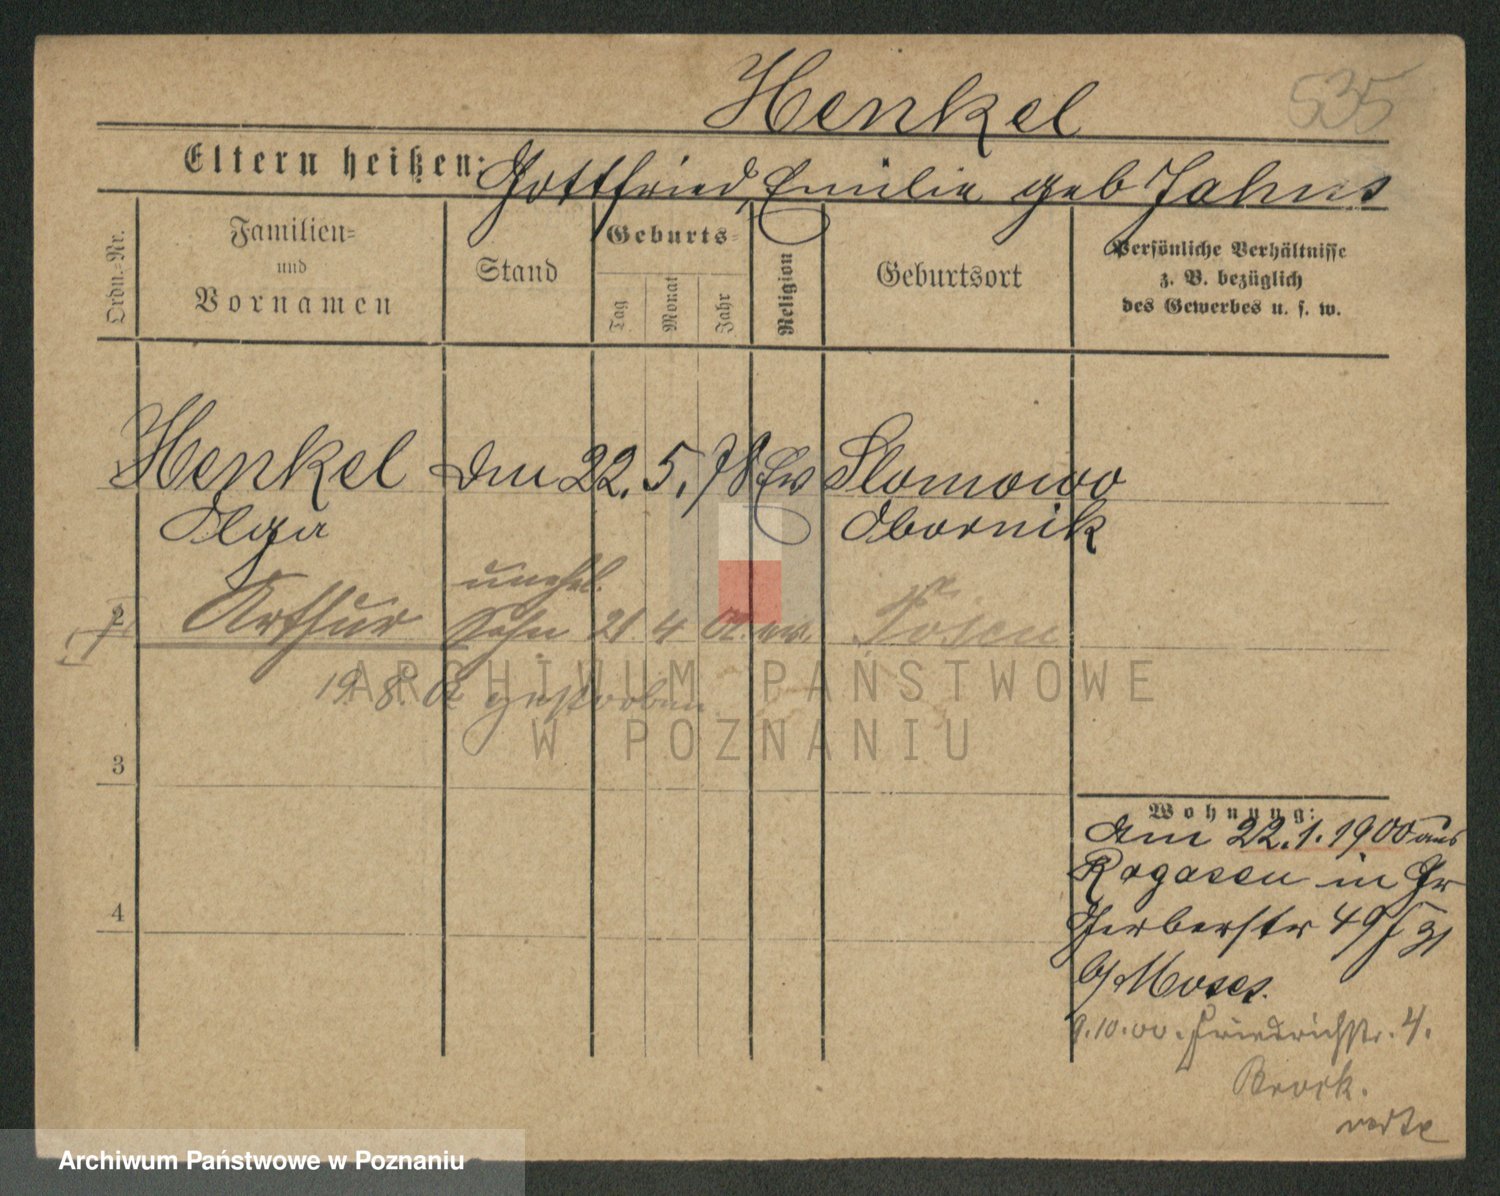 Henkel
535
Eltern heißen: Gottfried, Emilie geb Jahns
Ordn.-Nr.
Familien-
und
Vornamen
Stand
Geburts-
Tag
Monat
Jahr
Religion
Geburtsort
Persönliche Verhältnisse
z. B. bezüglich
des Gewerbes u. s. w.
Henkel 22. 5. 78 Ev Slomowo
Olga Obornik
unehel.
2 Arthur Sohn 21 4 ev. Posen
19. 8. 02 gestorben
ARCHIWUM PAŃSTWOWE
W POZNANIU
3
4
Wohnung:
Am 22.1.1900 aus
Rogasen in Gr
Gerberstr 49
b/ Moses.
9.10.00. Friedrichstr. 4.
verte
Archiwum Państwowe w Poznaniu